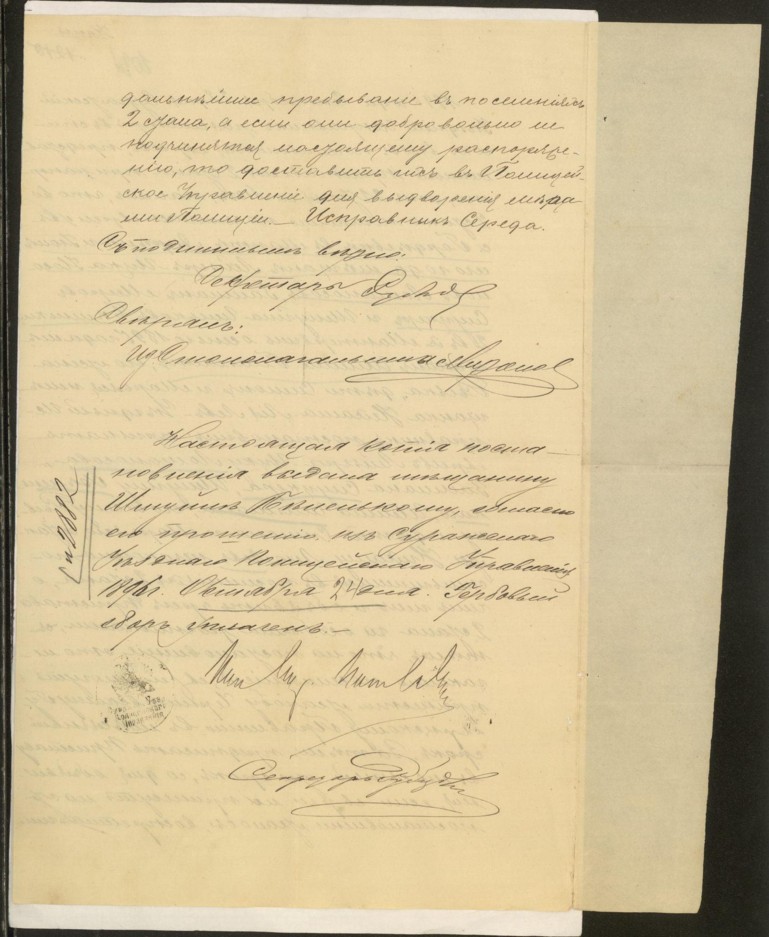 дальнѣйшее пребыванiе въ поселенiяхъ
2 стана, а если они добровольно не
подчинятся настоящему распоряже-
нiю, то доставить ихъ въ Полицей-
ское Управленiе для выдворенiя мѣра
ми Полицiи. — Исправникъ Середа.
Съ подлиннымъ вѣрно:
Секретарь
Свѣрялъ:
Настоящая копiя поста-
новленiя выдана мѣщанину
Шмуйлѣ согласно
его прошенiю изъ Суражскаго
Уѣзднаго Полицейскаго Управленiя
1896г. Октября 24 дня. Гербовый
сборъ уплаченъ. —
Секретарь
№ 2882